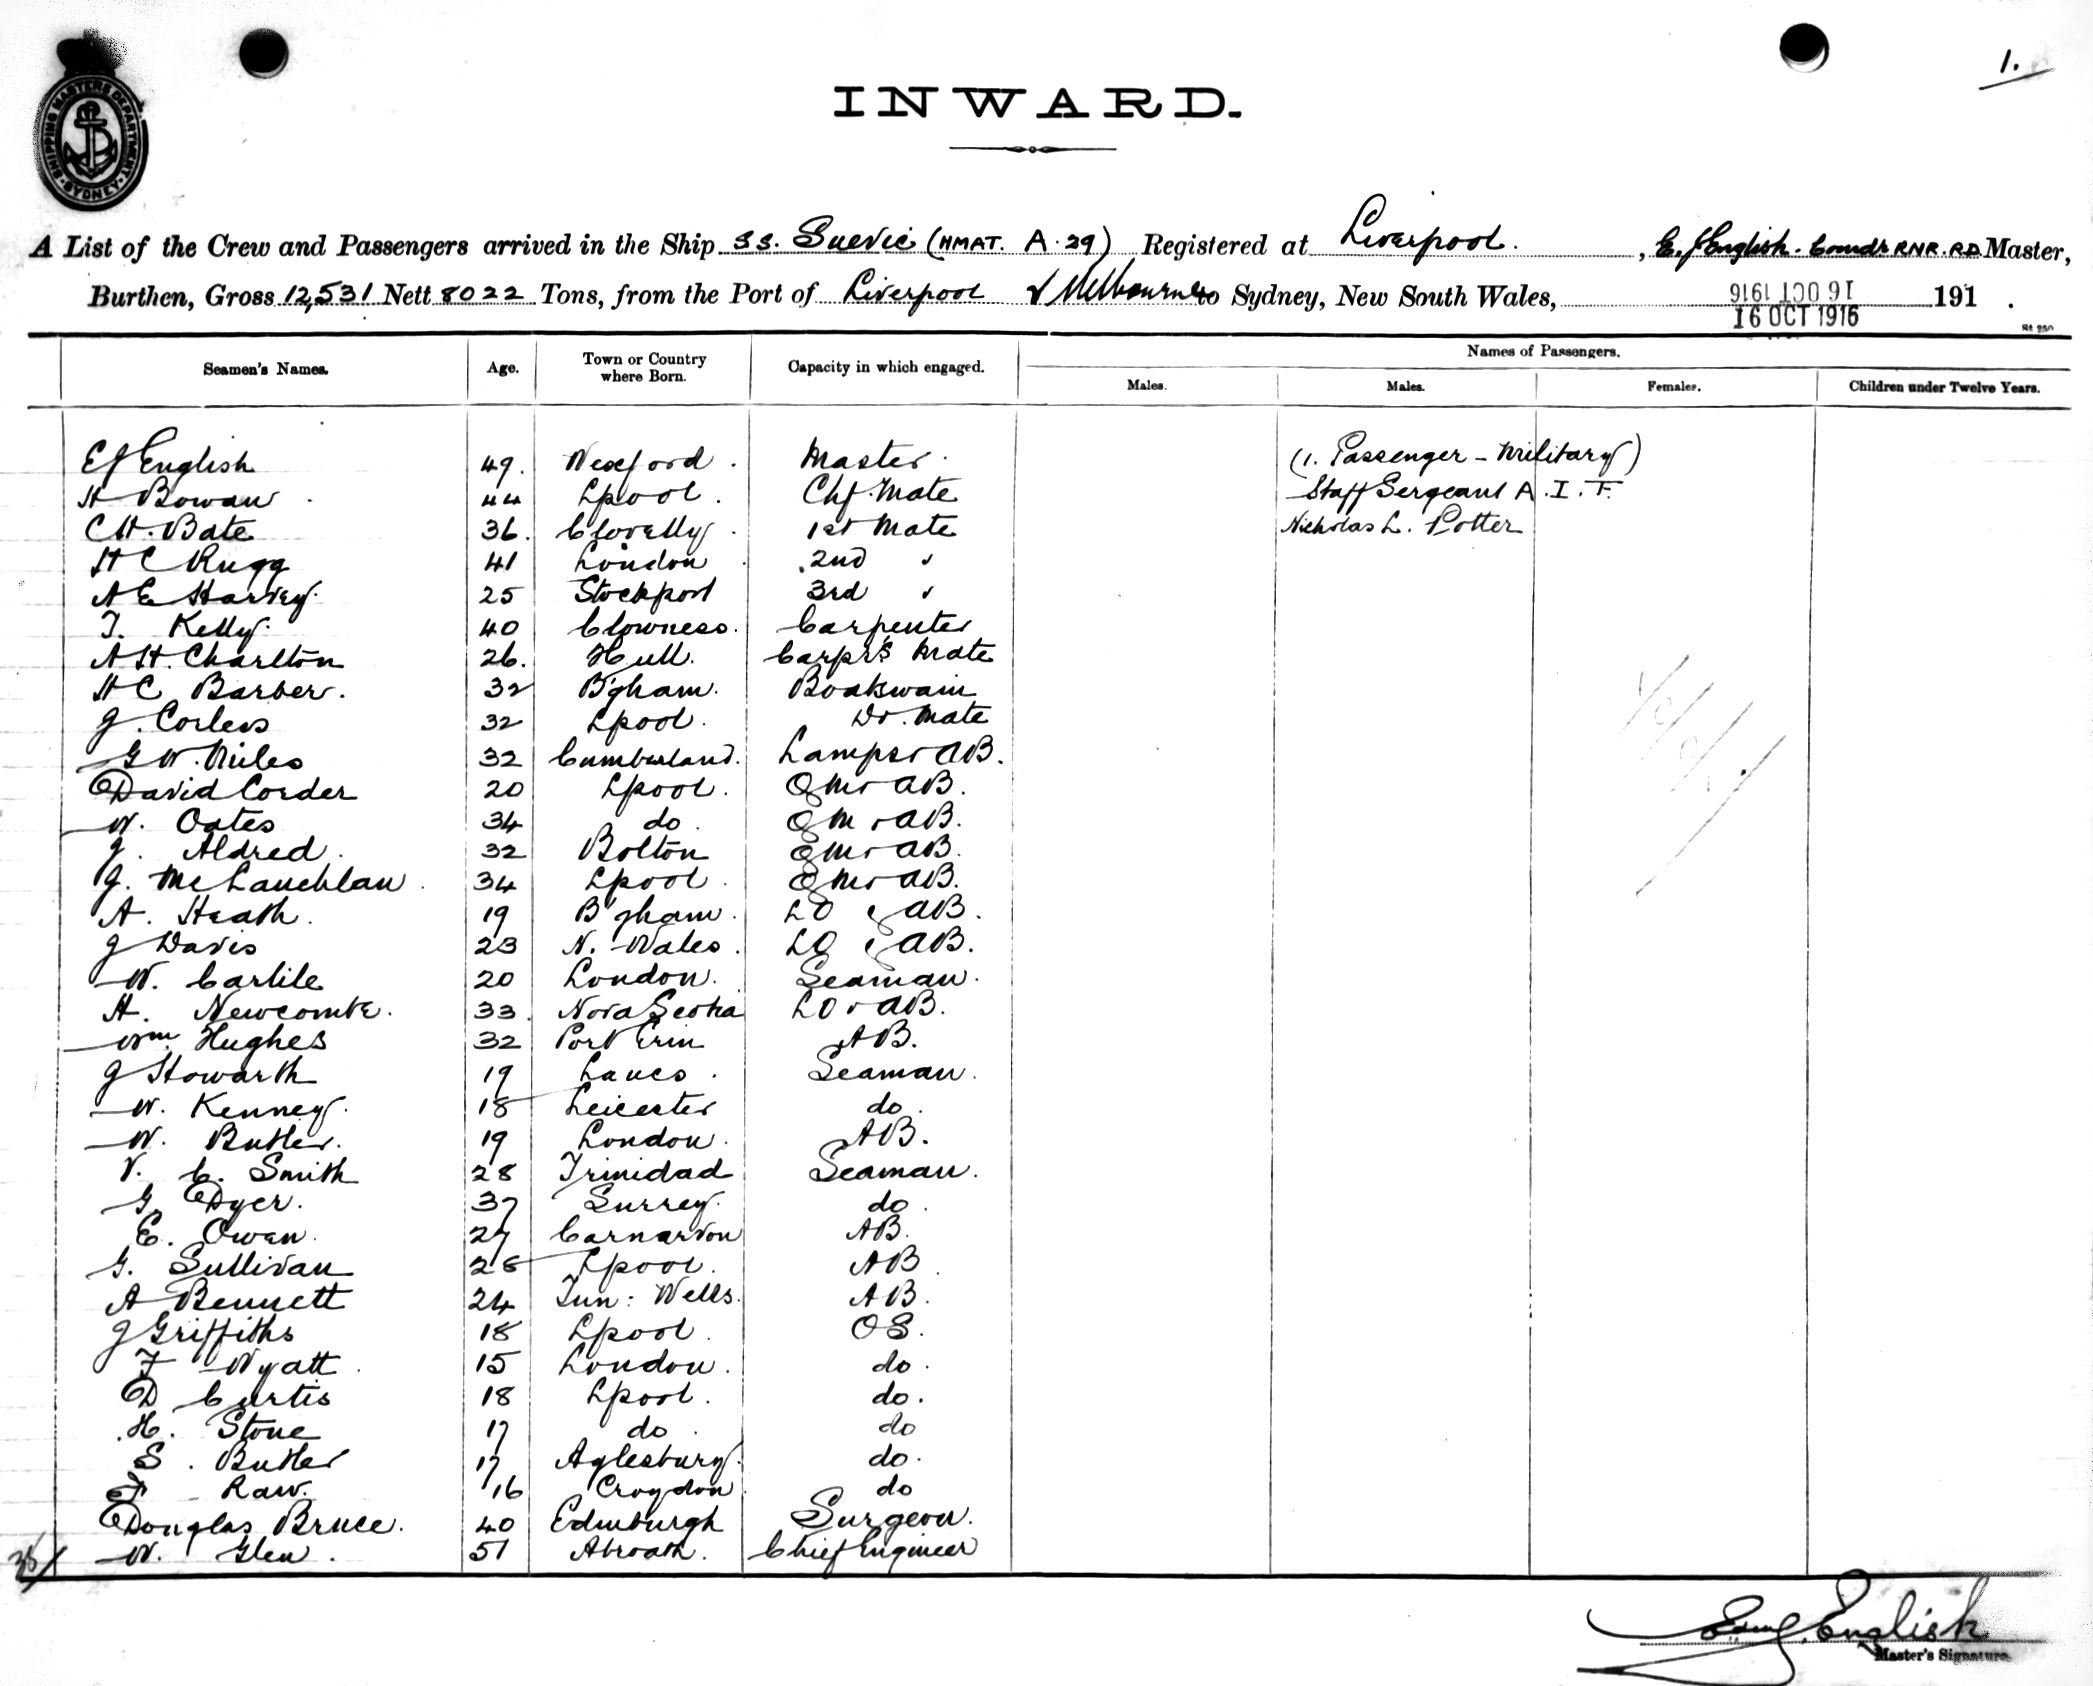 1.
SHIPPING MASTERS DEPARTMENT. SYDNEY
INWARD.
A List of the Crew and Passengers arrived in the Ship S.S. Suevic (HMAT. A.29) Registered at Liverpool. , E. J English. Comdr RNR. RD. Master,
Burthen, Gross 12,531 Nett 8022 Tons, from the Port of Liverpool & Melbourne to Sydney, New South Wales, 16 OCT 1916 191 .
16 OCT 1916
Names of Passengers.
Seamen's Names. Age. Town or Country where Born. Capacity in which engaged. Males. Males. Females. Children under Twelve Years.
E J English 49. Wexford. Master. (1. Passenger - Military)
H Bowan 44 Lpool. Chf. Mate Staff Sergeant A.I.F.
C H. Bate 36. Clovelly. 1st Mate Nicholas L. Potter
H C Rugg 41 London 2nd "
A E Harvey. 25 Stockport 3rd "
T. Kelly. 40 Clowness. Carpenter
A H. Charlton 26. Hull. Carpr's Mate
H C Barber. 32 B'gham. Boatswain
J. Corless 32 Lpool. Do. Mate
G W. Miles 32 Cumberland. Lamps & AB.
David Corder 20 Lpool. QMr AB.
W. Oates 34 do. QM & AB.
J. Aldred. 32 Bolton QMr AB.
J. McLauchlan. 34 Lpool. QMr AB.
A. Heath. 19 B'gham. LO & AB.
J Davis 23 N. Wales. LO & AB.
W. Carlile 20 London. Seaman.
H. Newcombe. 33. Nova Scotia LO & AB.
Wm. Hughes 32 Port Erin AB.
J Howarth 19 Lancs. Seaman.
W. Kenney. 18 Leicester do.
W. Butler. 19 London. AB.
V. C. Smith 28 Trinidad Seaman.
G. Dyer. 37 Surrey. do.
E. Owen. 27 Carnarvon AB.
G. Sullivan 28 Lpool. AB.
A Bennett 24 Tun: Wells. AB.
J Griffiths 18 Lpool. OS.
F Wyatt. 15 London. do.
D Curtis 18 Lpool. do.
H. Stone 17 do. do
S. Butler 17 Aylesbury. do.
F Raw. 16 Croydon. do
Douglas Bruce. 40 Edinburgh Surgeon.
W. Glen. 51 Abroath. Chief Engineer
35/
Edw J. English
Master's Signature.